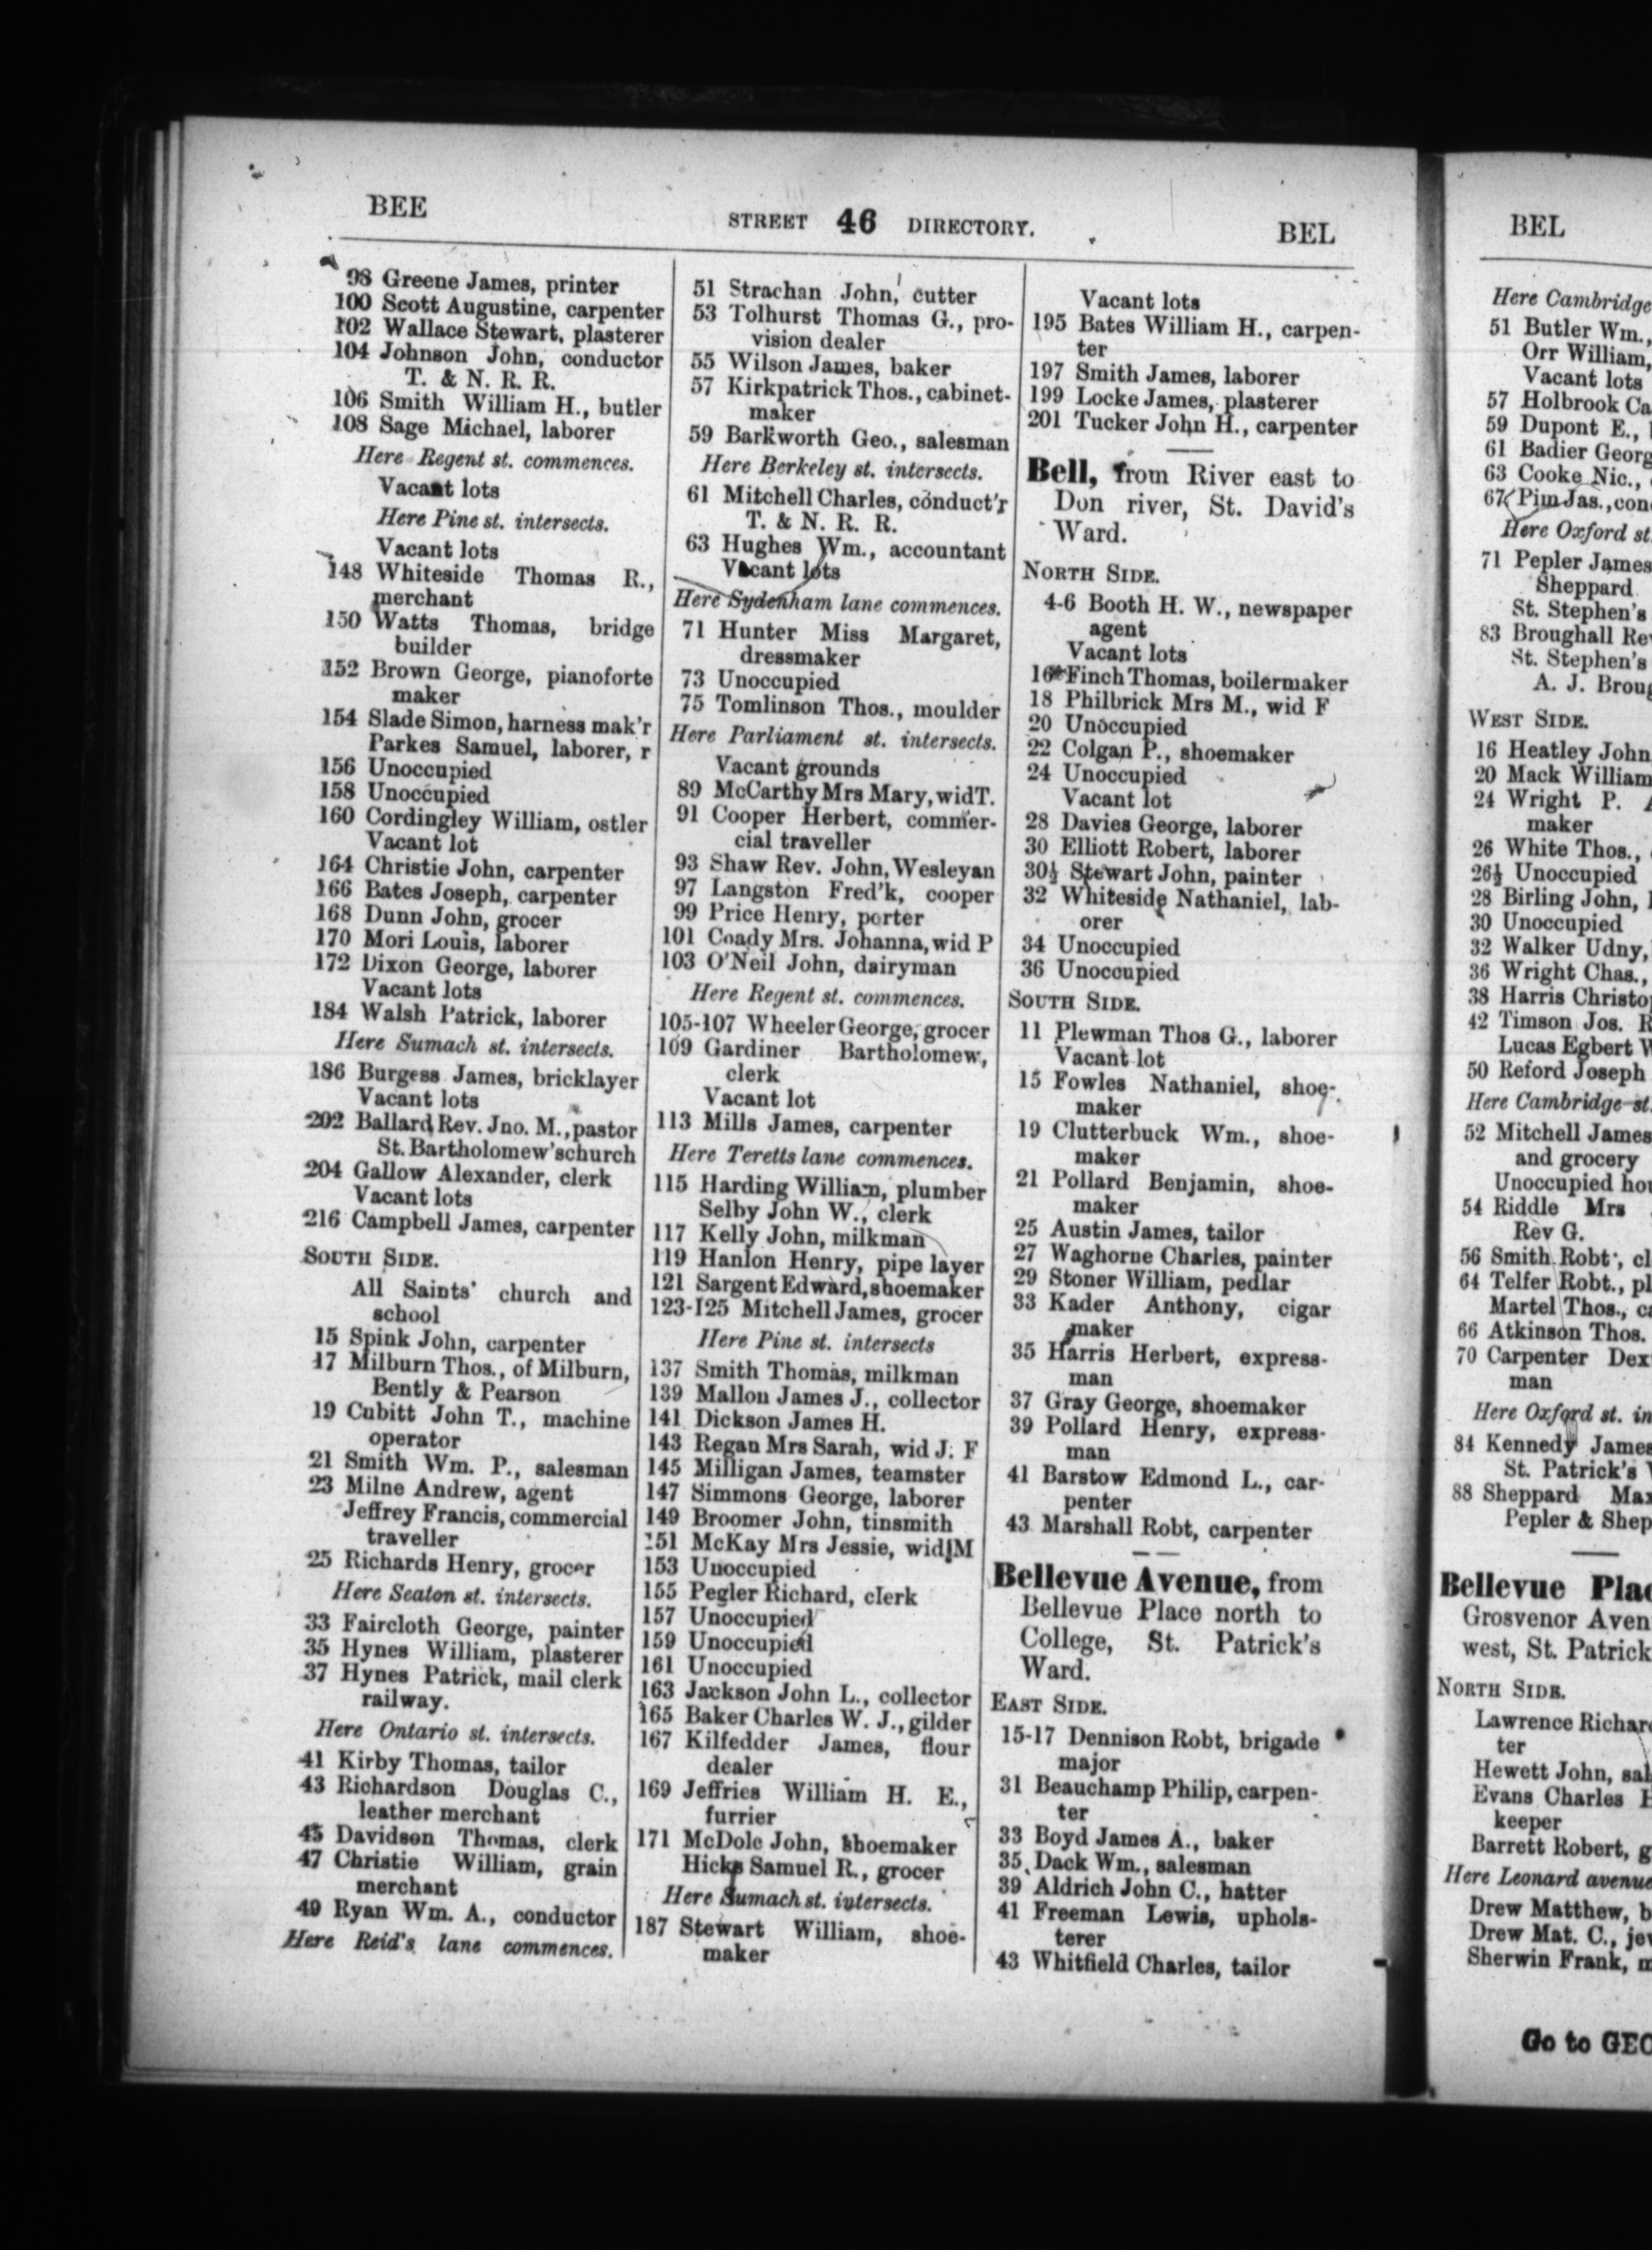 BEE
STREET 46 DIRECTORY.
BEL
98 Greene James, printer
100 Scott Augustine, carpenter
102 Wallace Stewart, plasterer
104 Johnson John, conductor
T. & N. R. R.
106 Smith William H., butler
108 Sage Michael, laborer
Here Regent st. commences.
Vacant lots
Here Pine st. intersects.
Vacant lots
148 Whiteside Thomas R.,
merchant
150 Watts Thomas, bridge
builder
152 Brown George, pianoforte
maker
154 Slade Simon, harness mak'r
Parkes Samuel, laborer, r
156 Unoccupied
158 Unoccupied
160 Cordingley William, ostler
Vacant lot
164 Christie John, carpenter
166 Bates Joseph, carpenter
168 Dunn John, grocer
170 Mori Louis, laborer
172 Dixon George, laborer
Vacant lots
184 Walsh Patrick, laborer
Here Sumach st. intersects.
186 Burgess James, bricklayer
Vacant lots
202 Ballard Rev. Jno. M., pastor
St. Bartholomew's church
204 Gallow Alexander, clerk
Vacant lots
216 Campbell James, carpenter
SOUTH SIDE.
All Saints' church and
school
15 Spink John, carpenter
17 Milburn Thos., of Milburn,
Bently & Pearson
19 Cubitt John T., machine
operator
21 Smith Wm. P., salesman
23 Milne Andrew, agent
Jeffrey Francis, commercial
traveller
25 Richards Henry, grocer
Here Seaton st. intersects.
33 Faircloth George, painter
35 Hynes William, plasterer
37 Hynes Patrick, mail clerk
railway.
Here Ontario st. intersects.
41 Kirby Thomas, tailor
43 Richardson Douglas C.,
leather merchant
45 Davidson Thomas, clerk
47 Christie William, grain
merchant
49 Ryan Wm. A., conductor
Here Reid's lane commences.
51 Strachan John, cutter
53 Tolhurst Thomas G., pro-
vision dealer
55 Wilson James, baker
57 Kirkpatrick Thos., cabinet-
maker
59 Barkworth Geo., salesman
Here Berkeley st. intersects.
61 Mitchell Charles, conduct'r
T. & N. R. R.
63 Hughes Wm., accountant
Vacant lots
Here Sydenham lane commences.
71 Hunter Miss Margaret,
dressmaker
73 Unoccupied
75 Tomlinson Thos., moulder
Here Parliament st. intersects.
Vacant grounds
89 McCarthy Mrs Mary, wid T.
91 Cooper Herbert, commer-
cial traveller
93 Shaw Rev. John, Wesleyan
97 Langston Fred'k, cooper
99 Price Henry, porter
101 Coady Mrs. Johanna, wid P
103 O'Neil John, dairyman
Here Regent st. commences.
105-107 Wheeler George, grocer
109 Gardiner Bartholomew,
clerk
Vacant lot
113 Mills James, carpenter
Here Teretts lane commences.
115 Harding William, plumber
Selby John W., clerk
117 Kelly John, milkman
119 Hanlon Henry, pipe layer
121 Sargent Edward, shoemaker
123-125 Mitchell James, grocer
Here Pine st. intersects
137 Smith Thomas, milkman
139 Mallon James J., collector
141 Dickson James H.
143 Regan Mrs Sarah, wid J. F
145 Milligan James, teamster
147 Simmons George, laborer
149 Broomer John, tinsmith
151 McKay Mrs Jessie, wid M
153 Unoccupied
155 Pegler Richard, clerk
157 Unoccupied
159 Unoccupied
161 Unoccupied
163 Jackson John L., collector
165 Baker Charles W. J., gilder
167 Kilfedder James, flour
dealer
169 Jeffries William H. E.,
furrier
171 McDole John, shoemaker
Hicks Samuel R., grocer
Here Sumach st. intersects.
187 Stewart William, shoe-
maker
Vacant lots
195 Bates William H., carpen-
ter
197 Smith James, laborer
199 Locke James, plasterer
201 Tucker John H., carpenter
Bell, from River east to
Don river, St. David's
Ward.
NORTH SIDE.
4-6 Booth H. W., newspaper
agent
Vacant lots
16 Finch Thomas, boilermaker
18 Philbrick Mrs M., wid F
20 Unoccupied
22 Colgan P., shoemaker
24 Unoccupied
Vacant lot
28 Davies George, laborer
30 Elliott Robert, laborer
30½ Stewart John, painter
32 Whiteside Nathaniel, lab-
orer
34 Unoccupied
36 Unoccupied
SOUTH SIDE.
11 Plewman Thos G., laborer
Vacant lot
15 Fowles Nathaniel, shoe-
maker
19 Clutterbuck Wm., shoe-
maker
21 Pollard Benjamin, shoe-
maker
25 Austin James, tailor
27 Waghorne Charles, painter
29 Stoner William, pedlar
33 Kader Anthony, cigar
maker
35 Harris Herbert, express-
man
37 Gray George, shoemaker
39 Pollard Henry, express-
man
41 Barstow Edmond L., car-
penter
43 Marshall Robt, carpenter
Bellevue Avenue, from
Bellevue Place north to
College, St. Patrick's
Ward.
EAST SIDE.
15-17 Dennison Robt, brigade
major
31 Beauchamp Philip, carpen-
ter
33 Boyd James A., baker
35 Dack Wm., salesman
39 Aldrich John C., hatter
41 Freeman Lewis, uphols-
terer
43 Whitfield Charles, tailor
BEL
Here Cambridge
51 Butler Wm.,
Orr William,
Vacant lots
57 Holbrook Ca
59 Dupont E.,
61 Badier Georg
63 Cooke Nic.,
67 Pim Jas., con
Here Oxford st.
71 Pepler James
Sheppard
St. Stephen's
83 Broughall Rev
St. Stephen's
A. J. Broug
WEST SIDE.
16 Heatley John
20 Mack William
24 Wright P. A
maker
26 White Thos.,
26½ Unoccupied
28 Birling John,
30 Unoccupied
32 Walker Udny,
36 Wright Chas.,
38 Harris Christo
42 Timson Jos. R
Lucas Egbert W
50 Reford Joseph
Here Cambridge st.
52 Mitchell James
and grocery
Unoccupied hou
54 Riddle Mrs
Rev G.
56 Smith Robt, cl
64 Telfer Robt., pl
Martel Thos., ca
66 Atkinson Thos.
70 Carpenter Dex
man
Here Oxford st. in
84 Kennedy James
St. Patrick's
88 Sheppard Max
Pepler & Shep
Bellevue Plac
Grosvenor Aven
west, St. Patrick
NORTH SIDE.
Lawrence Richar
ter
Hewett John, sal
Evans Charles
keeper
Barrett Robert, g
Here Leonard avenue
Drew Matthew, b
Drew Mat. C., jew
Sherwin Frank, m
Go to GEO